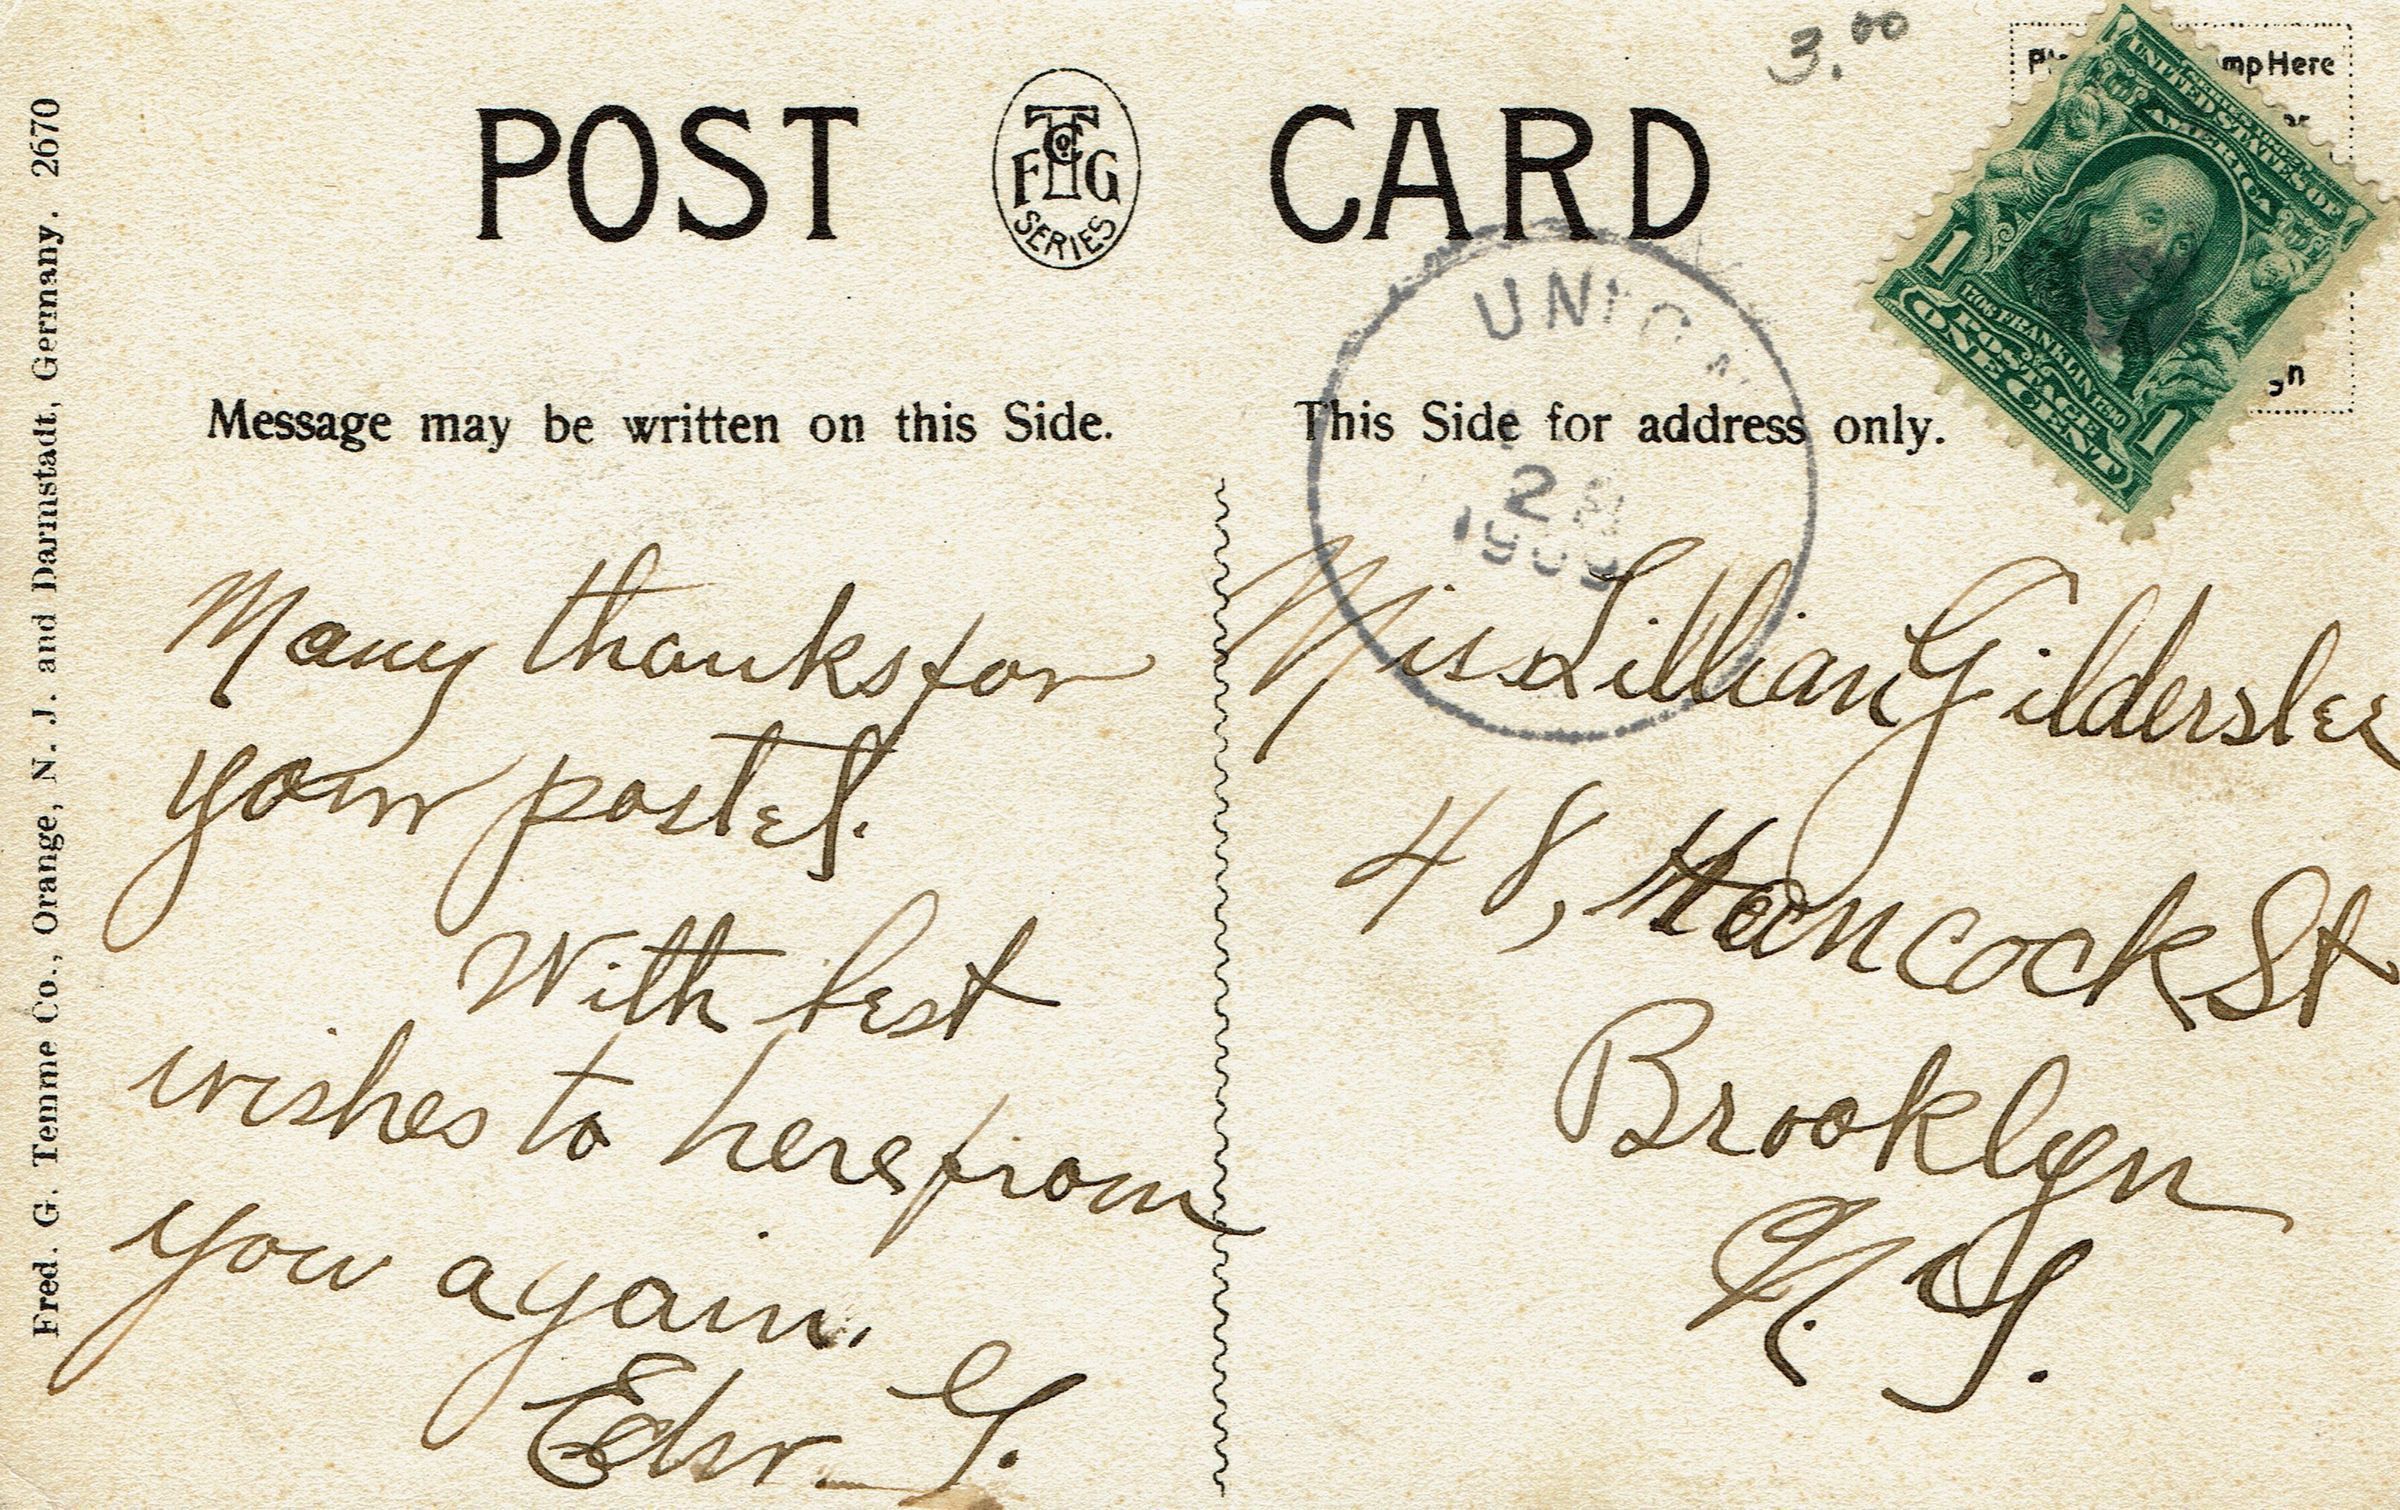 3.00
POST CARD
F.G.T. Co.
SERIES
Mp Here
UNITED STATES OF
AMERICA
1706 FRANKLIN 1790
POSTAGE
1 ONE CENT 1
UNION
2
1909
Message may be written on this Side.
This Side for address only.
Many thanks for
your postel.
With best
wishes to here from
you again.
Edw. G.
Miss Lillian Gilderslee
48, Hancock St
Brooklyn
N. Y.
Fred. G. Temme Co., Orange, N. J. and Darmstadt, Germany. 2670